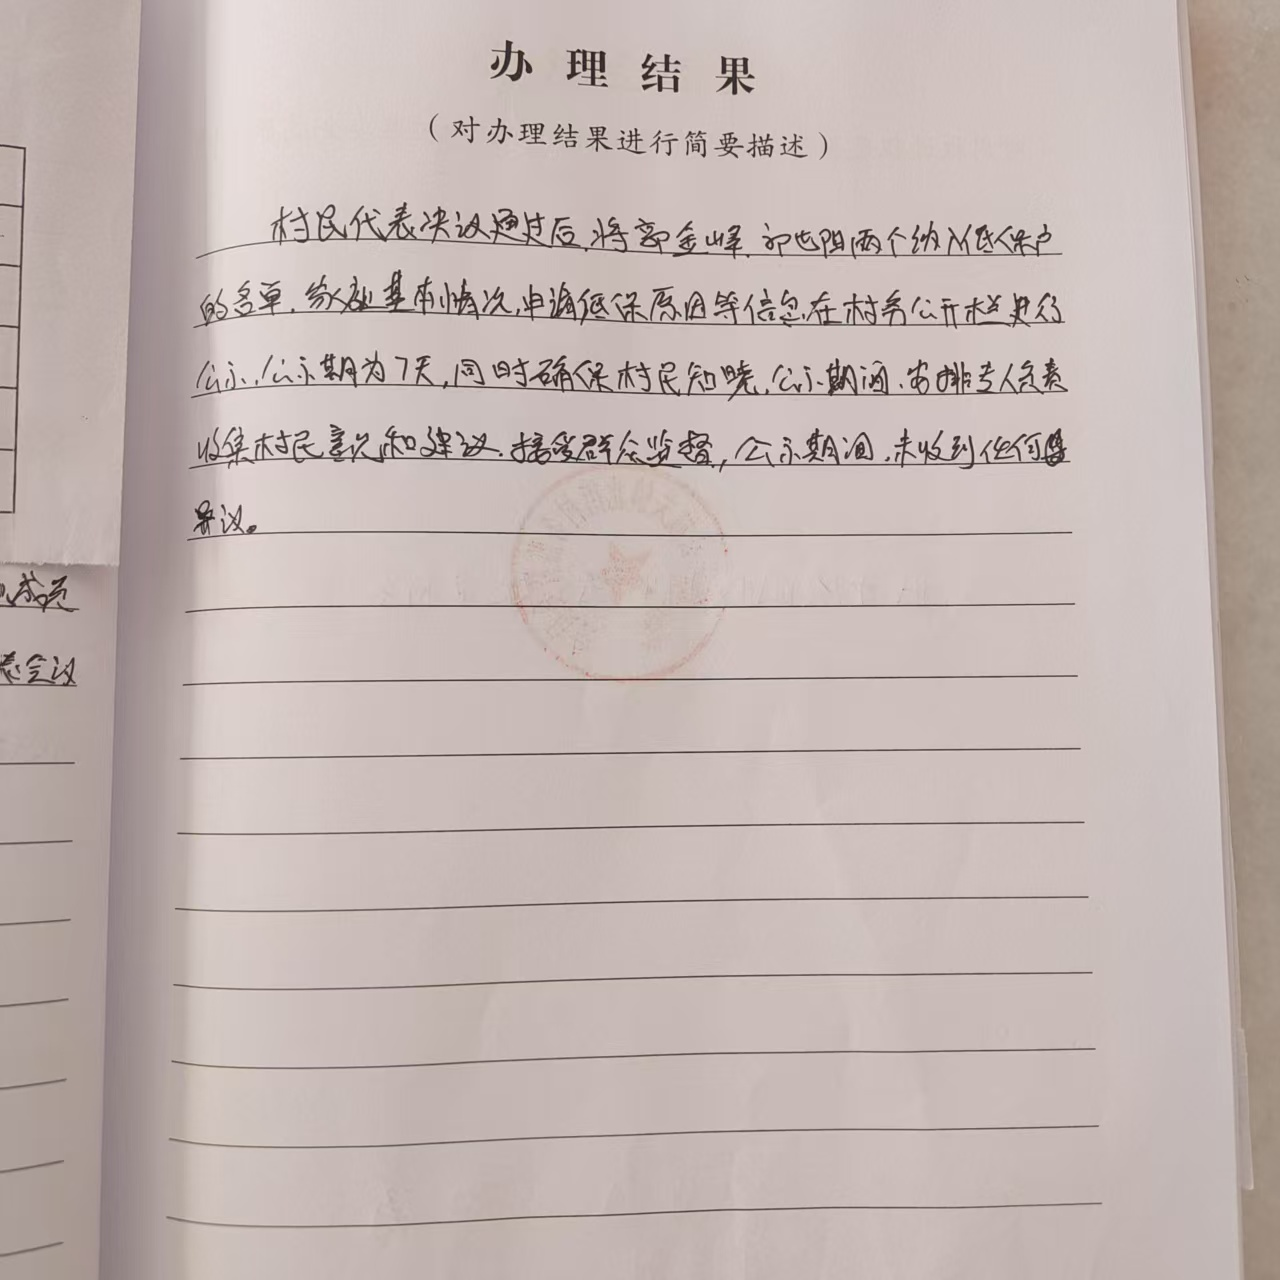 办理结果
（对办理结果进行简要描述）
村民代表决议通过后，将郭金峰、祁艳阳两个纳入低保户
的名单，家庭基本情况，申请低保原因等信息在村务公开栏进行
公示，公示期为7天，同时确保村民知晓，公示期间，安排专人负责
收集村民意见和建议，接受群众监督，公示期间，未收到任何
异议。
成员
表会议